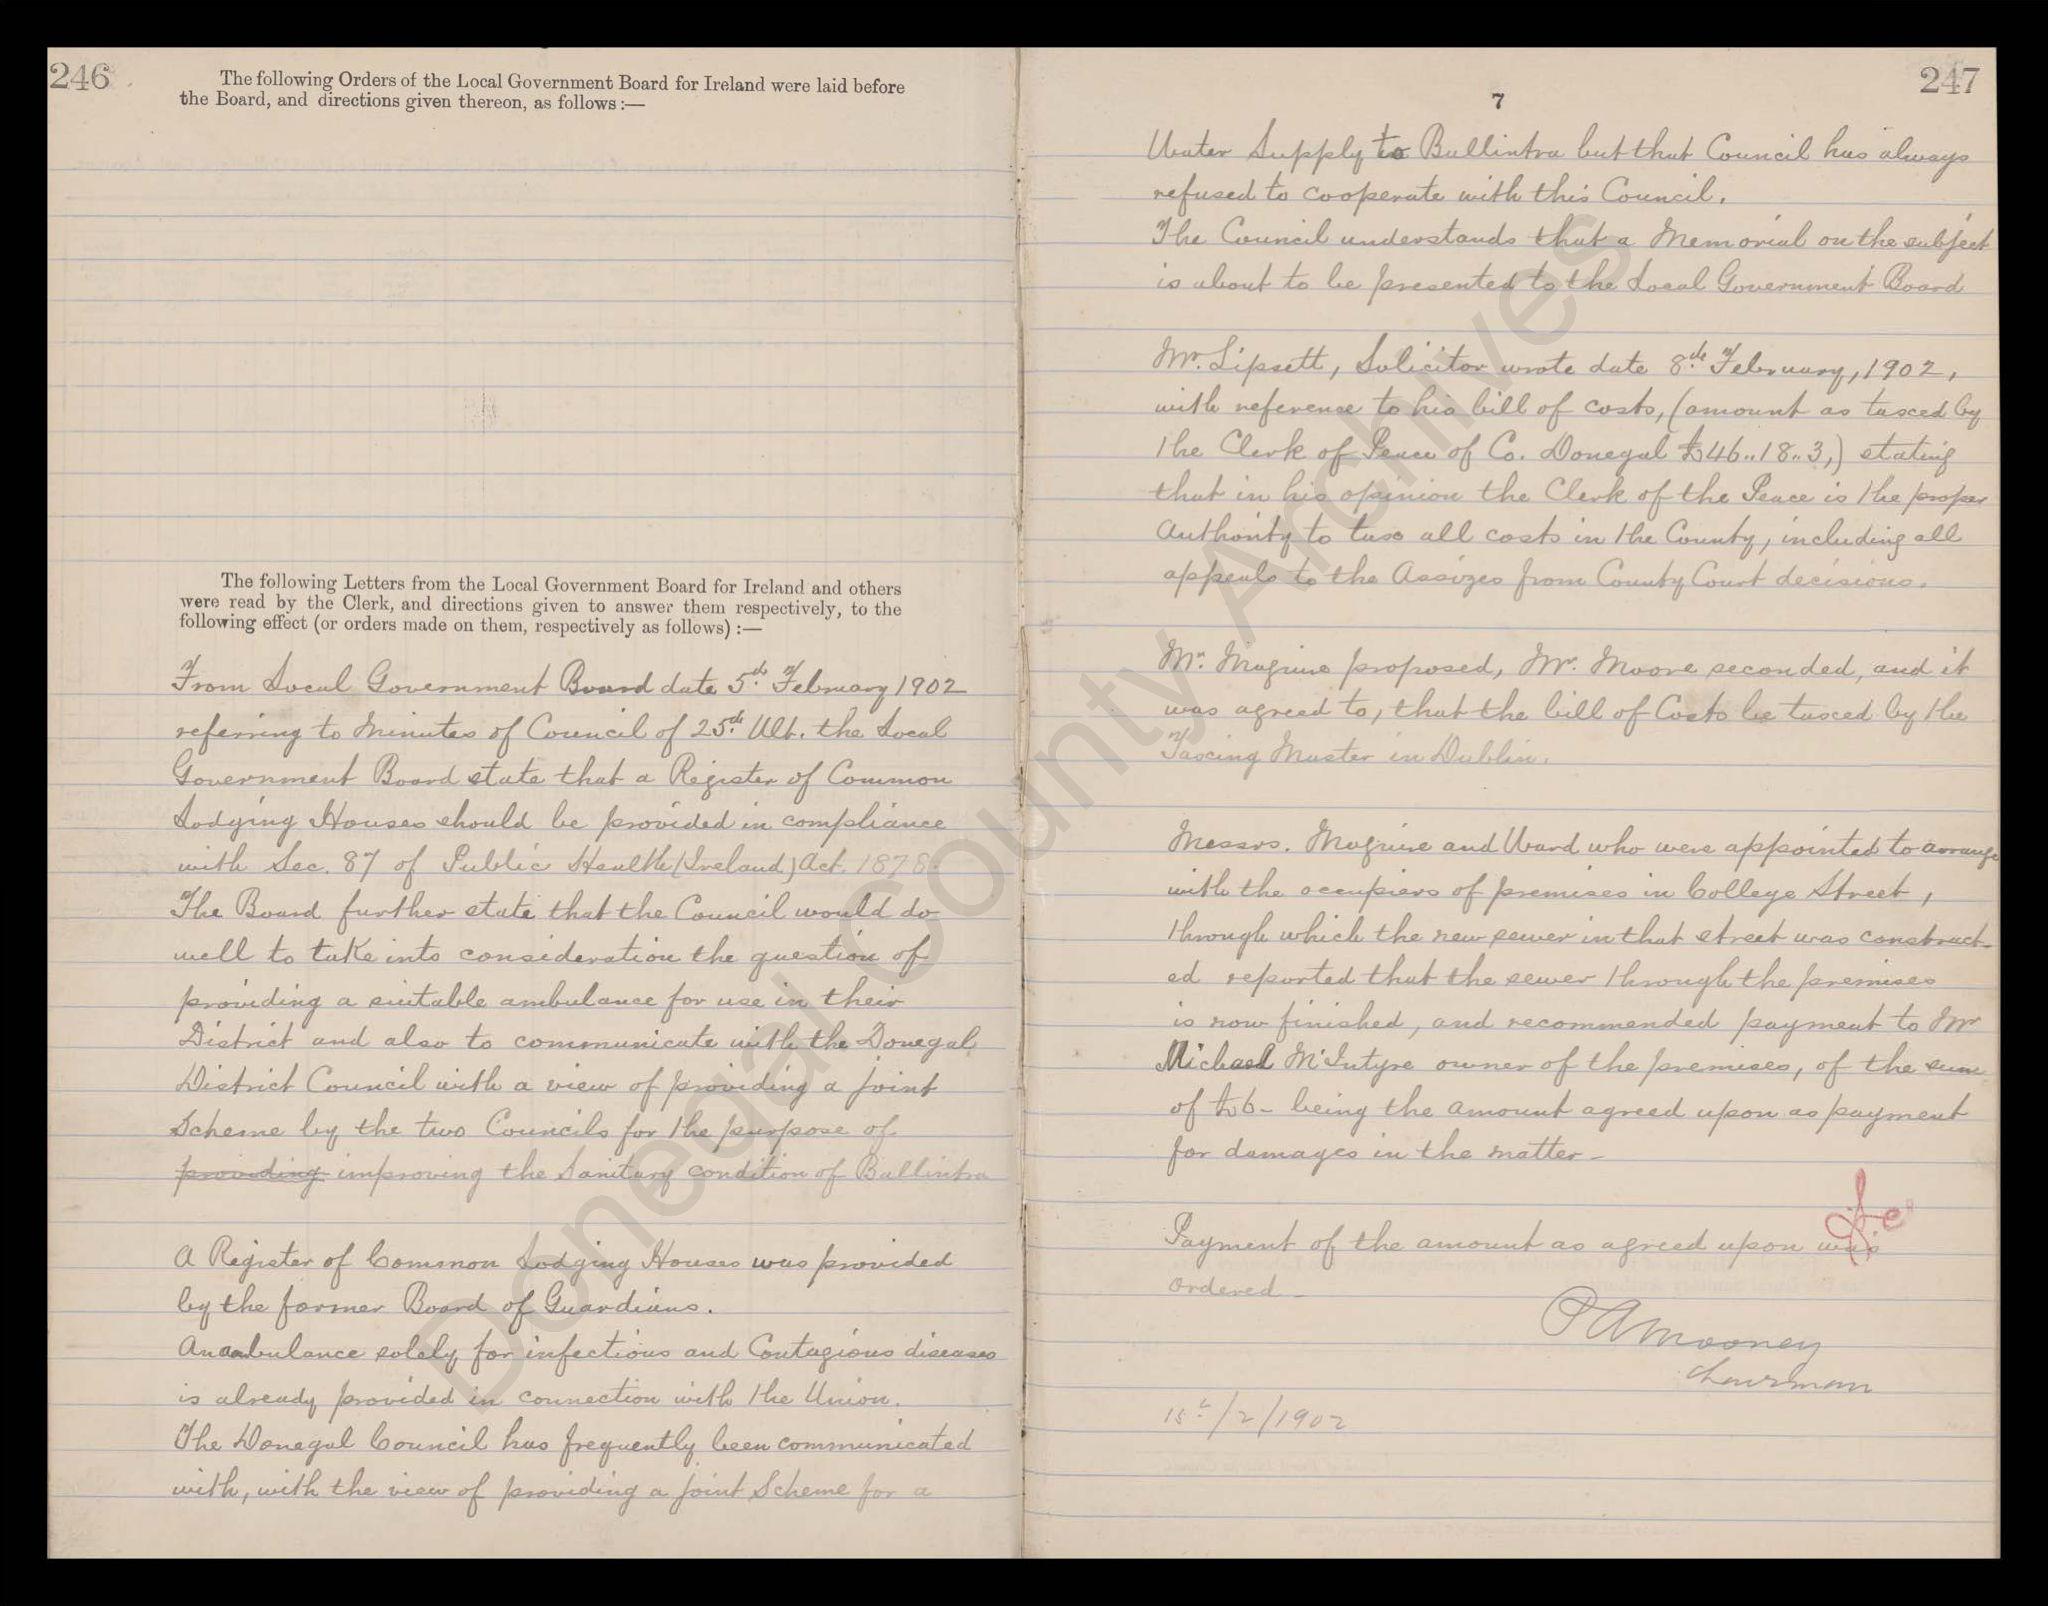 246
The following Orders of the Local Government Board for Ireland were laid before
the Board, and directions given thereon, as follows :—
The following Letters from the Local Government Board for Ireland and others
were read by the Clerk, and directions given to answer them respectively, to the
following effect (or orders made on them, respectively as follows) :—
From Local Government Board date 5th February 1902
referring to Minutes of Council of 25th Ult. the Local
Government Board state that a Register of Common
Lodging Houses should be provided in compliance
with Sec. 87 of Public Health (Ireland) Act. 1878.
The Board further state that the Council would do
well to take into consideration the question of
providing a suitable ambulance for use in their
District and also to communicate with the Donegal
District Council with a view of providing a joint
Scheme by the two Councils for the purpose of
providing improving the Sanitary condition of Ballintra
A Register of Common Lodging Houses was provided
by the former Board of Guardians.
An ambulance solely for infectious and Contagious diseases
is already provided in connection with the Union.
The Donegal Council has frequently been communicated
with, with the view of providing a joint Scheme for a
247
7
Water Supply to Ballintra but that Council has always
refused to cooperate with this Council.
The Council understands that a Memorial on the subject
is about to be presented to the Local Government Board
Mr. Lipsett, Solicitor wrote date 8th February, 1902,
with reference to his bill of costs, (amount as taxed by
the Clerk of Peace of Co. Donegal £46..18..3,) stating
that in his opinion the Clerk of the Peace is the proper
Authority to tax all costs in the County, including all
appeals to the Assizes from County Court decisions.
Mr. Maguire proposed, Mr. Moore seconded, and it
was agreed to, that the bill of Costs be taxed by the
Taxing Master in Dublin.
Messrs. Maguire and Ward who were appointed to arrange
with the occupiers of premises in College Street,
through which the new sewer in that street was construct-
ed reported that the sewer through the premises
is now finished, and recommended payment to Mr
Michael McIntyre owner of the premises, of the sum
of £6- being the amount agreed upon as payment
for damages in the matter-
Payment of the amount as agreed upon was
ordered-
P A Mooney
Chairman
15th/2/1902
Donegal County Archives